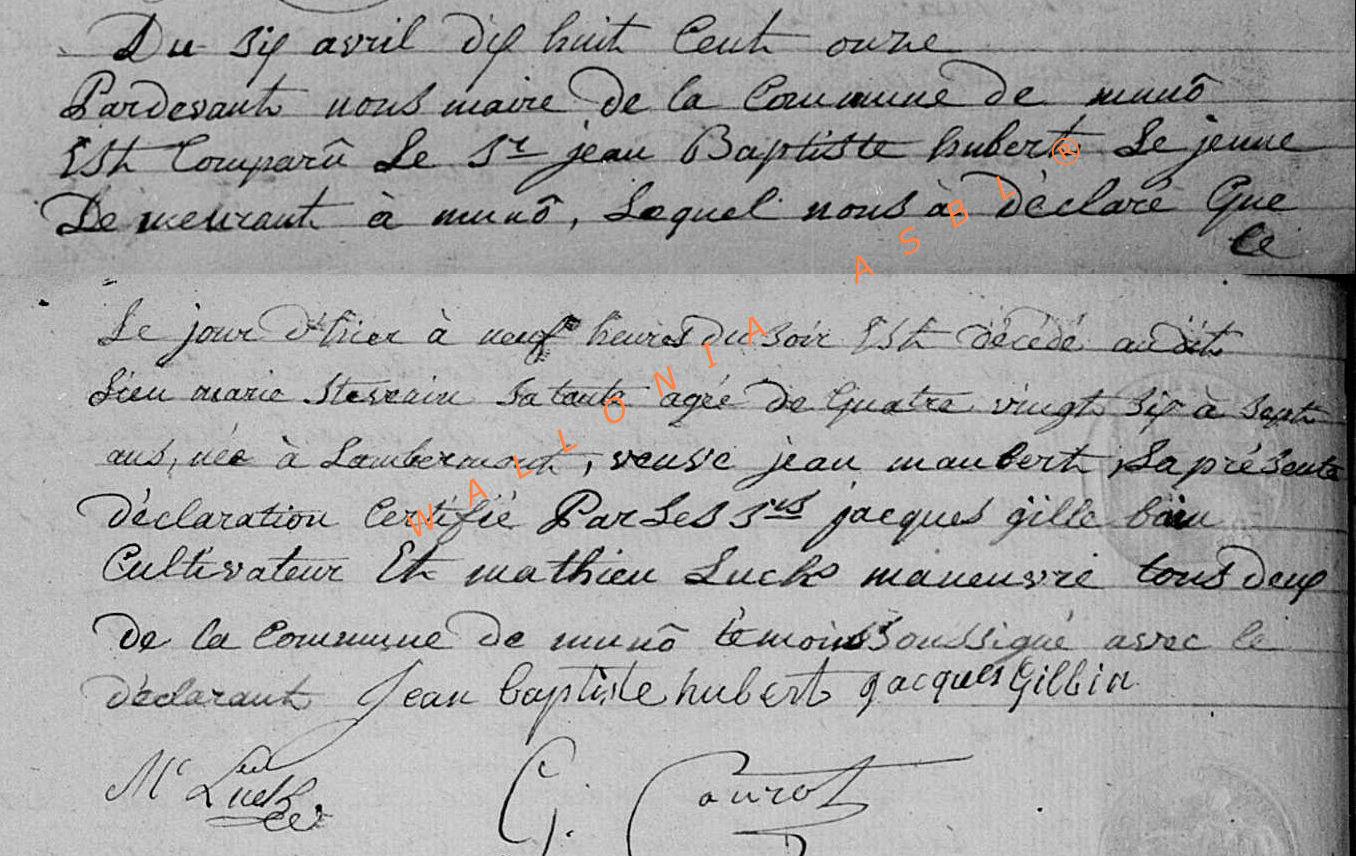 Du six avril dix huit Cent onze
Pardevant nous maire de la Commune de munô
Est Comparû Le Sr jean Baptiste hubert Le jeune
Demeurant à munô, Lequel nous à déclaré Que
Ce
Le jour d'hier à neuf heures du soir Est décédé audit
Lieu marie Stevenin sa tante agée de Quatre vingt six à sept
ans, née à Lambermont, veuve jean maubert, La présente
déclaration Certifié Par Les Srs jacques gille bain
Cultivateur Et mathieu Luck maneuvre tous deux
de la Commune de munô témoins soussigné avec le
déclarant Jean baptiste hubert Jacques Gillbin
Mc Luck
G. Courot
WALLONIA ASBL ®